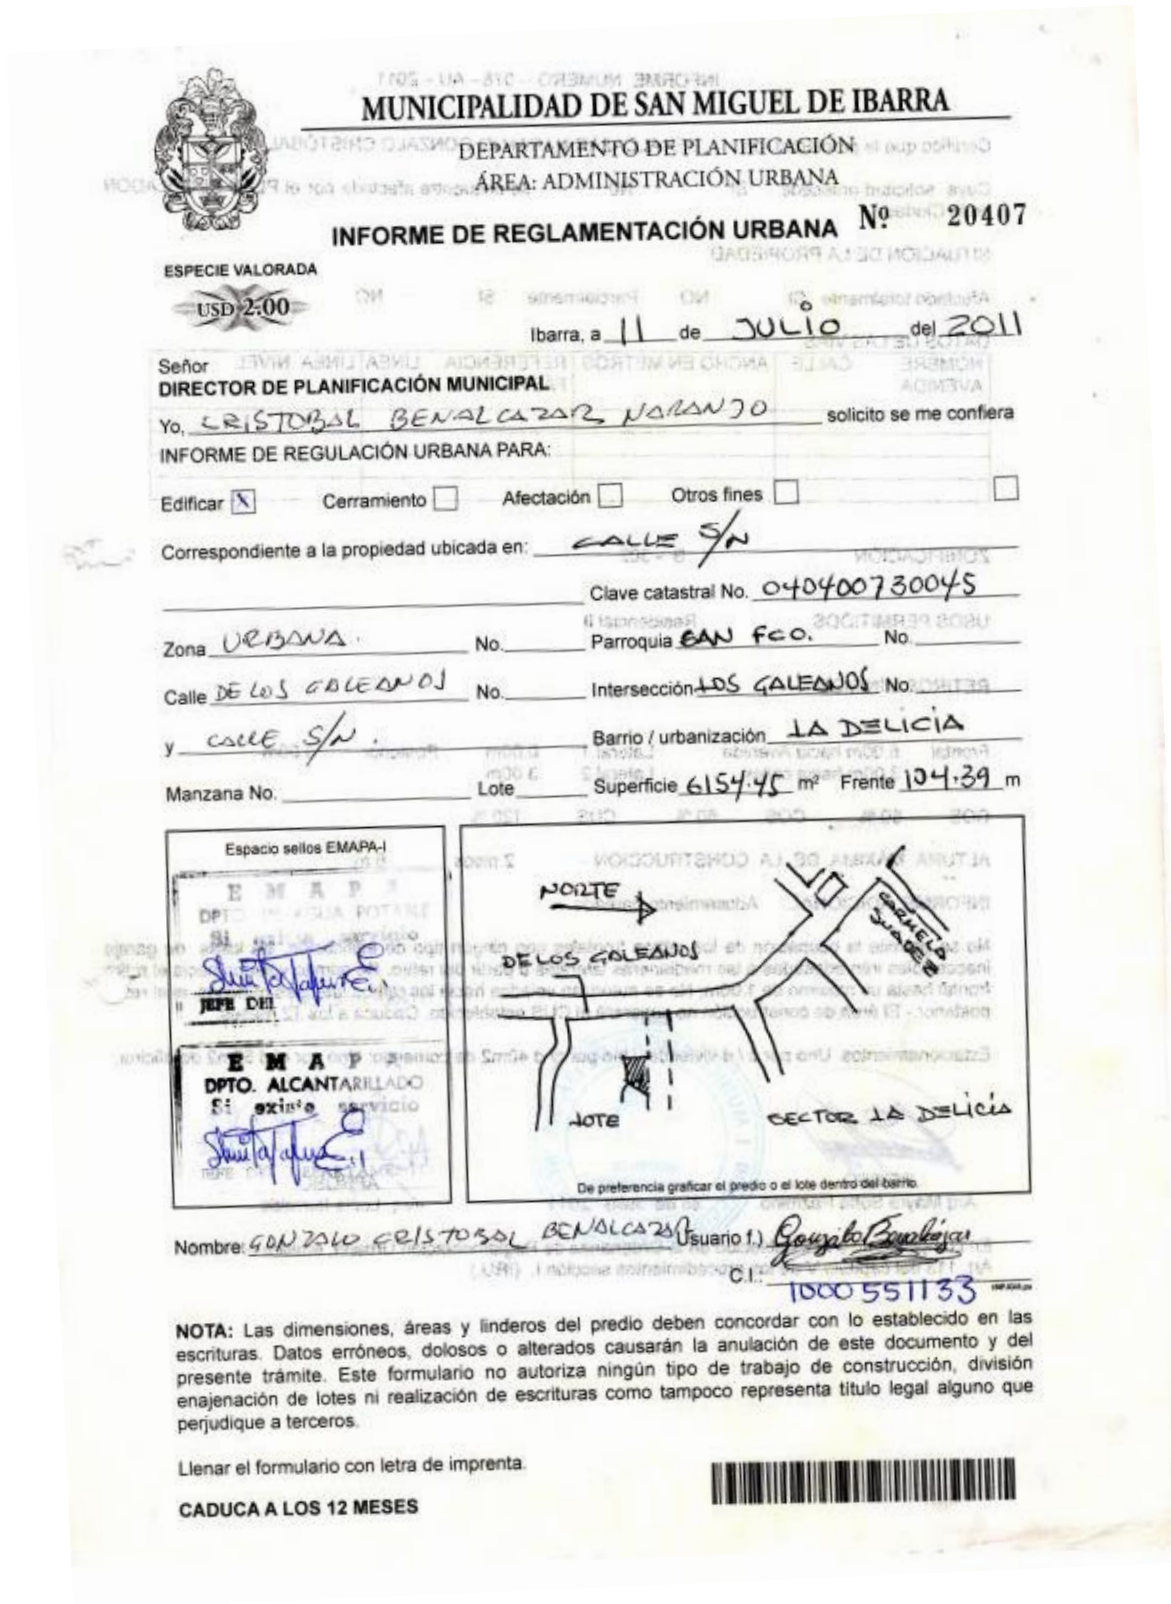 MUNICIPALIDAD DE SAN MIGUEL DE IBARRA
DEPARTAMENTO DE PLANIFICACIÓN
ÁREA: ADMINISTRACIÓN URBANA
INFORME DE REGLAMENTACIÓN URBANA Nº 20407
ESPECIE VALORADA
USD 2.00
Ibarra, a 11 de JULIO del 2011
Señor
DIRECTOR DE PLANIFICACIÓN MUNICIPAL
Yo, CRISTOBAL BENALCAZAR NARANJO solicito se me confiera
INFORME DE REGULACIÓN URBANA PARA:
Edificar X Cerramiento Afectación Otros fines
Correspondiente a la propiedad ubicada en: CALLE S/N
Clave catastral No. 040400730045
Zona URBANA. No. Parroquia SAN FCO. No.
Calle DE LOS GALEANOS No. Intersección LOS GALEANOS No.
y CALLE S/N. Barrio / urbanización LA DELICIA
Manzana No. Lote Superficie 6154.45 m² Frente 104.39 m
Espacio sellos EMAPA-I
E M A P A
DPTO. DE AGUA POTABLE
Si existe servicio
JEFE DEL
E M A P A
DPTO. ALCANTARILLADO
Si existe servicio
NORTE
CARMELO SUADEZ
DE LOS GALEANOS
LOTE
SECTOR LA DELICIA
De preferencia graficar el predio o el lote dentro del barrio.
Nombre: GONZALO CRISTOBAL BENALCAZAR Usuario f.) Gonzalo Benalcázar
C.I.: 1000551133
NOTA: Las dimensiones, áreas y linderos del predio deben concordar con lo establecido en las
escrituras. Datos erróneos, dolosos o alterados causarán la anulación de este documento y del
presente trámite. Este formulario no autoriza ningún tipo de trabajo de construcción, división
enajenación de lotes ni realización de escrituras como tampoco representa título legal alguno que
perjudique a terceros.
Llenar el formulario con letra de imprenta.
CADUCA A LOS 12 MESES